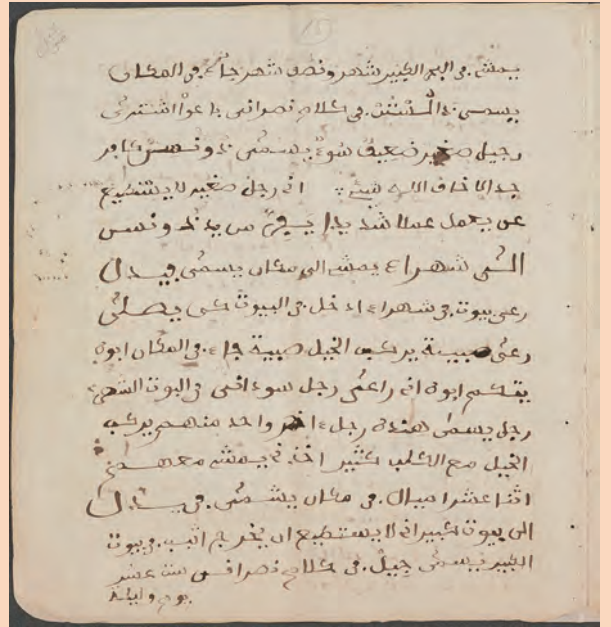 يمش في البحر الكبير شهر ونصف شهر جاء في المكان
يسمى في كلام نصراني باعوا اشترى
رجيل صغير ضعيف سوء يسمى كافر
جدا لا خاف الله شيء اني رجل صغير لا يستطيع
عن يعمل عملا شديدا من يد
الى شهراء يمش الى مكان يسمى فيدل
رعى بيوت في شهراء ادخل في البيوت كى يصلى
رعى صبية يركب الخيل صبية جاء في المكان ابوه
يتكلم ابوه انه راعى رجل سوء انى في البوت
رجل يسمى هنده رجل ءاخر واحد منهم يركب
الخيل مع الكلب كثير اخذني يمش معهم
اثنا عشرا ميال في مكان يسمى فيدل
الى بيوت كبير اني لا يستطيع ان يخرج في بيوت
الكبير يسمى جيل في كلام نصراني ست عشر
يوم وليلة